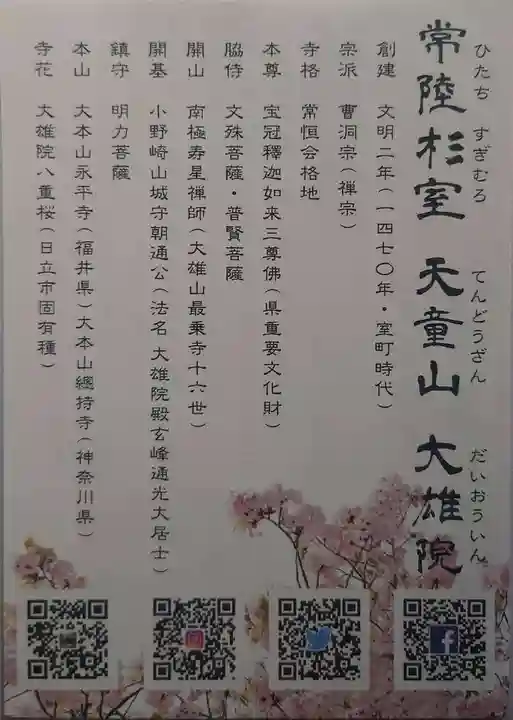 常陸杉室 天童山 大雄院
ひたち すぎむろ てんどうざん だいおういん
創建 文明二年(一四七〇年・室町時代)
宗派 曹洞宗(禅宗)
寺格 常恒会格地
本尊 宝冠釋迦如来三尊佛(県重要文化財)
脇侍 文殊菩薩・普賢菩薩
開山 南極寿星禅師(大雄山最乗寺十六世)
開基 小野崎山城守朝通公(法名 大雄院殿玄峰通光大居士)
鎮守 明力菩薩
本山 大本山永平寺(福井県)大本山總持寺(神奈川県)
寺花 大雄院八重桜(日立市固有種)